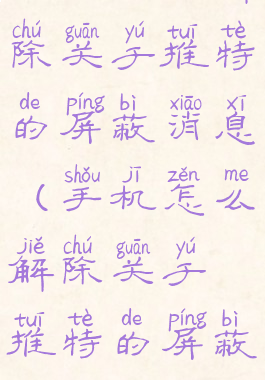 chú guān yú tuī tè
除关于推特
de píng bì xiāo xī
的屏蔽消息
shǒu jī zěn me
(手机怎么
jiě chú guān yú
解除关于
tuī tè de píng bì
推特的屏蔽